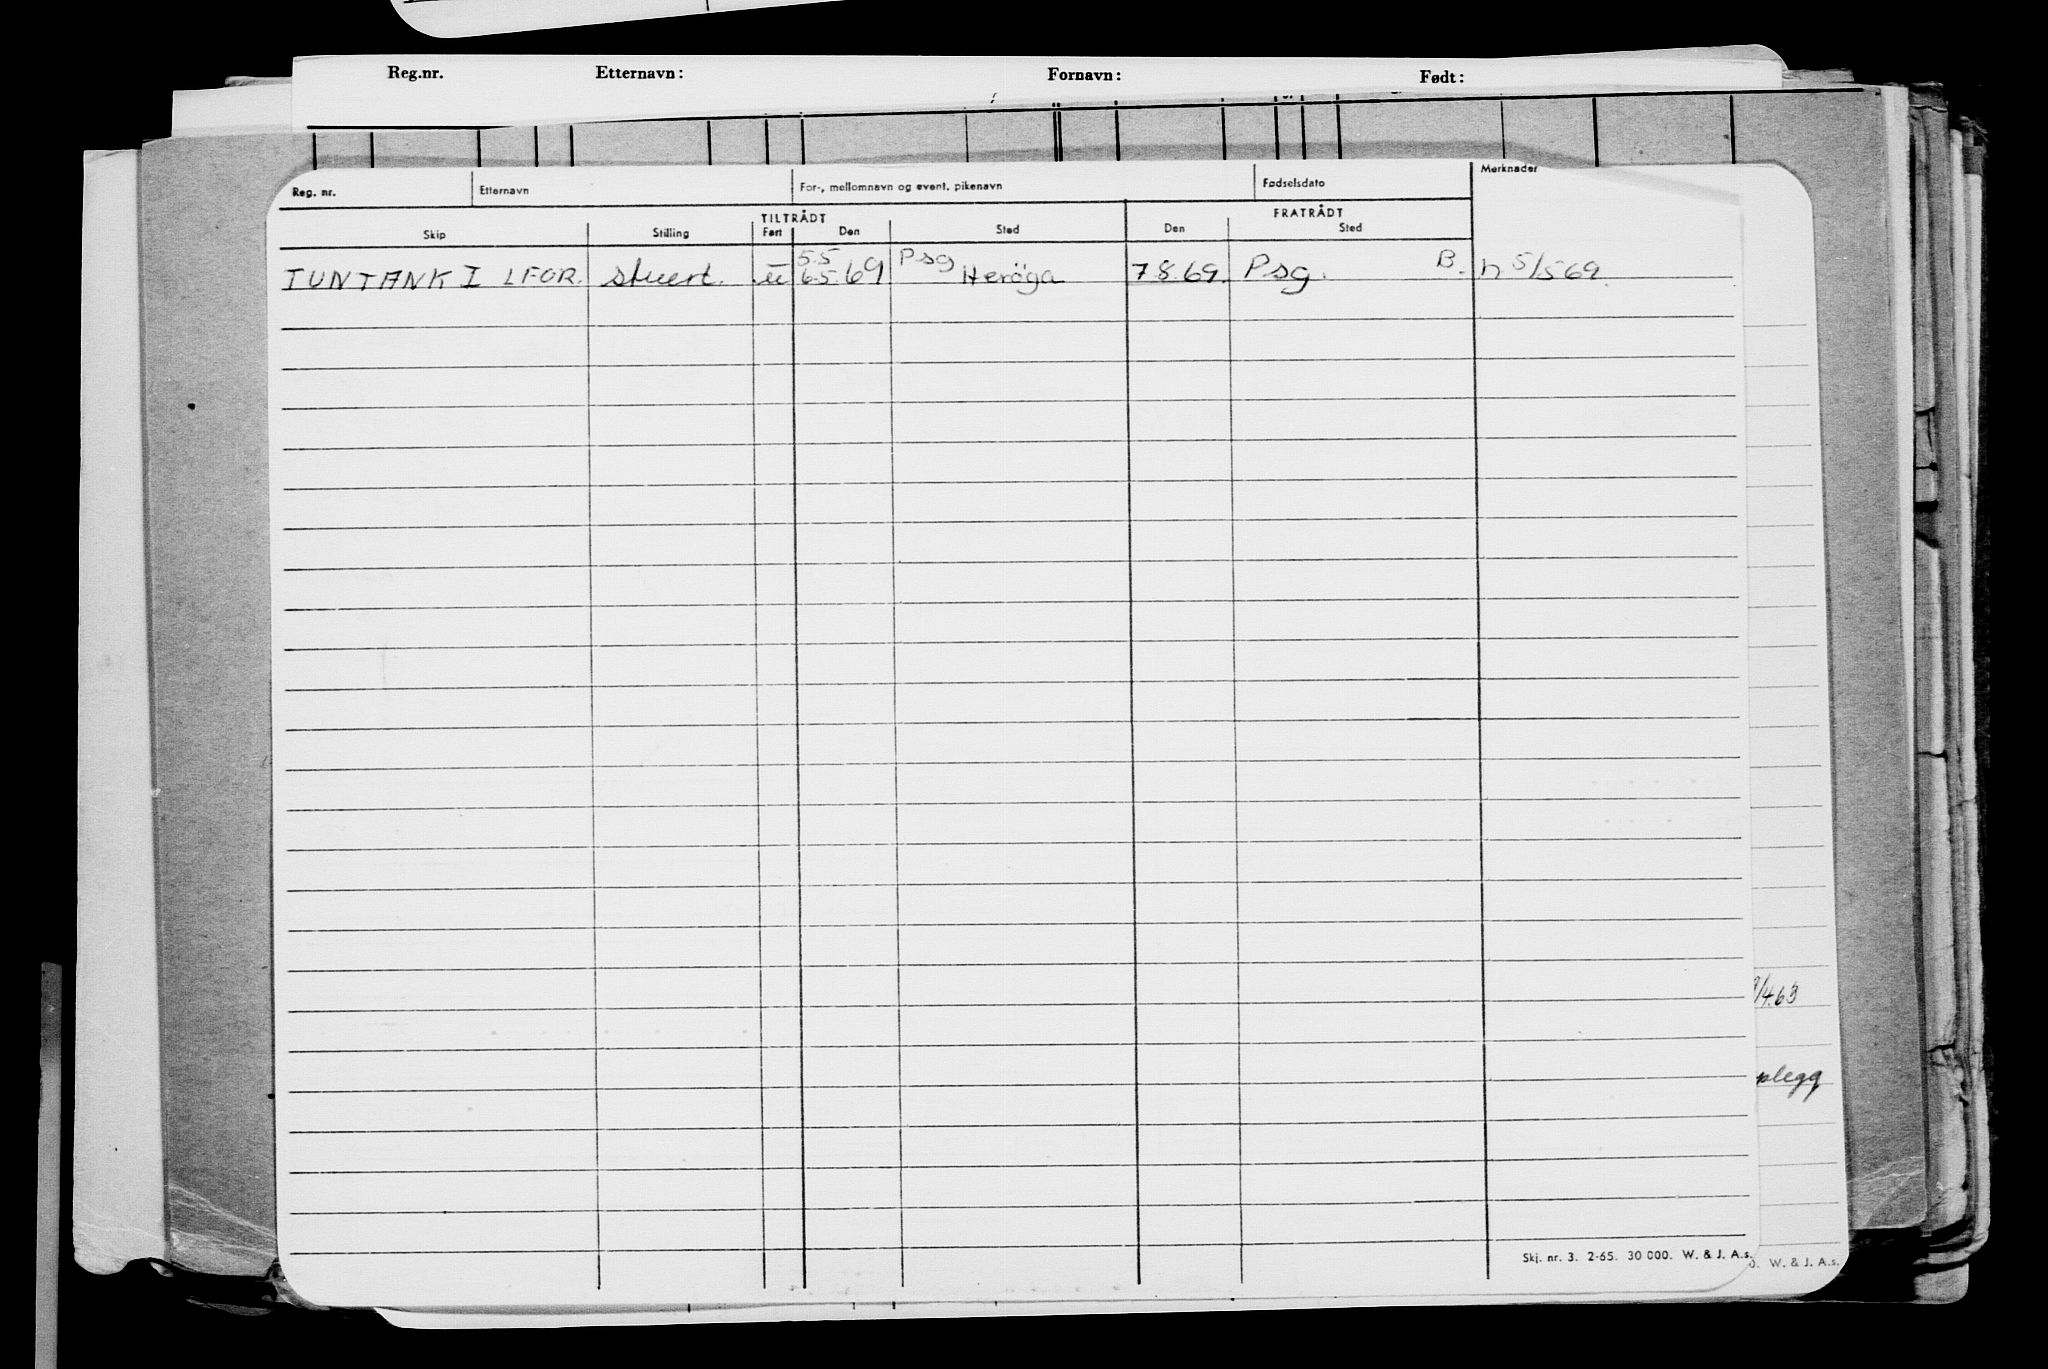 Reg.nr. Etternavn: Fornavn: Født:
Reg. nr. Etternavn For-, mellomnavn og event. pikenavn Fødselsdato Merknader
TILTRÅDT FRATRÅDT
Skip Stilling Fart Den Sted Den Sted
5.5 Psg B.
TUNTANK I LFOR. stuert. u 6.5.69 Heröga 7.8.69. Psg. h 5/5 69.
/4.63
plegg
Skj. nr. 3. 2-65. 30 000. W. & J. A.s. W. & J. A.s.